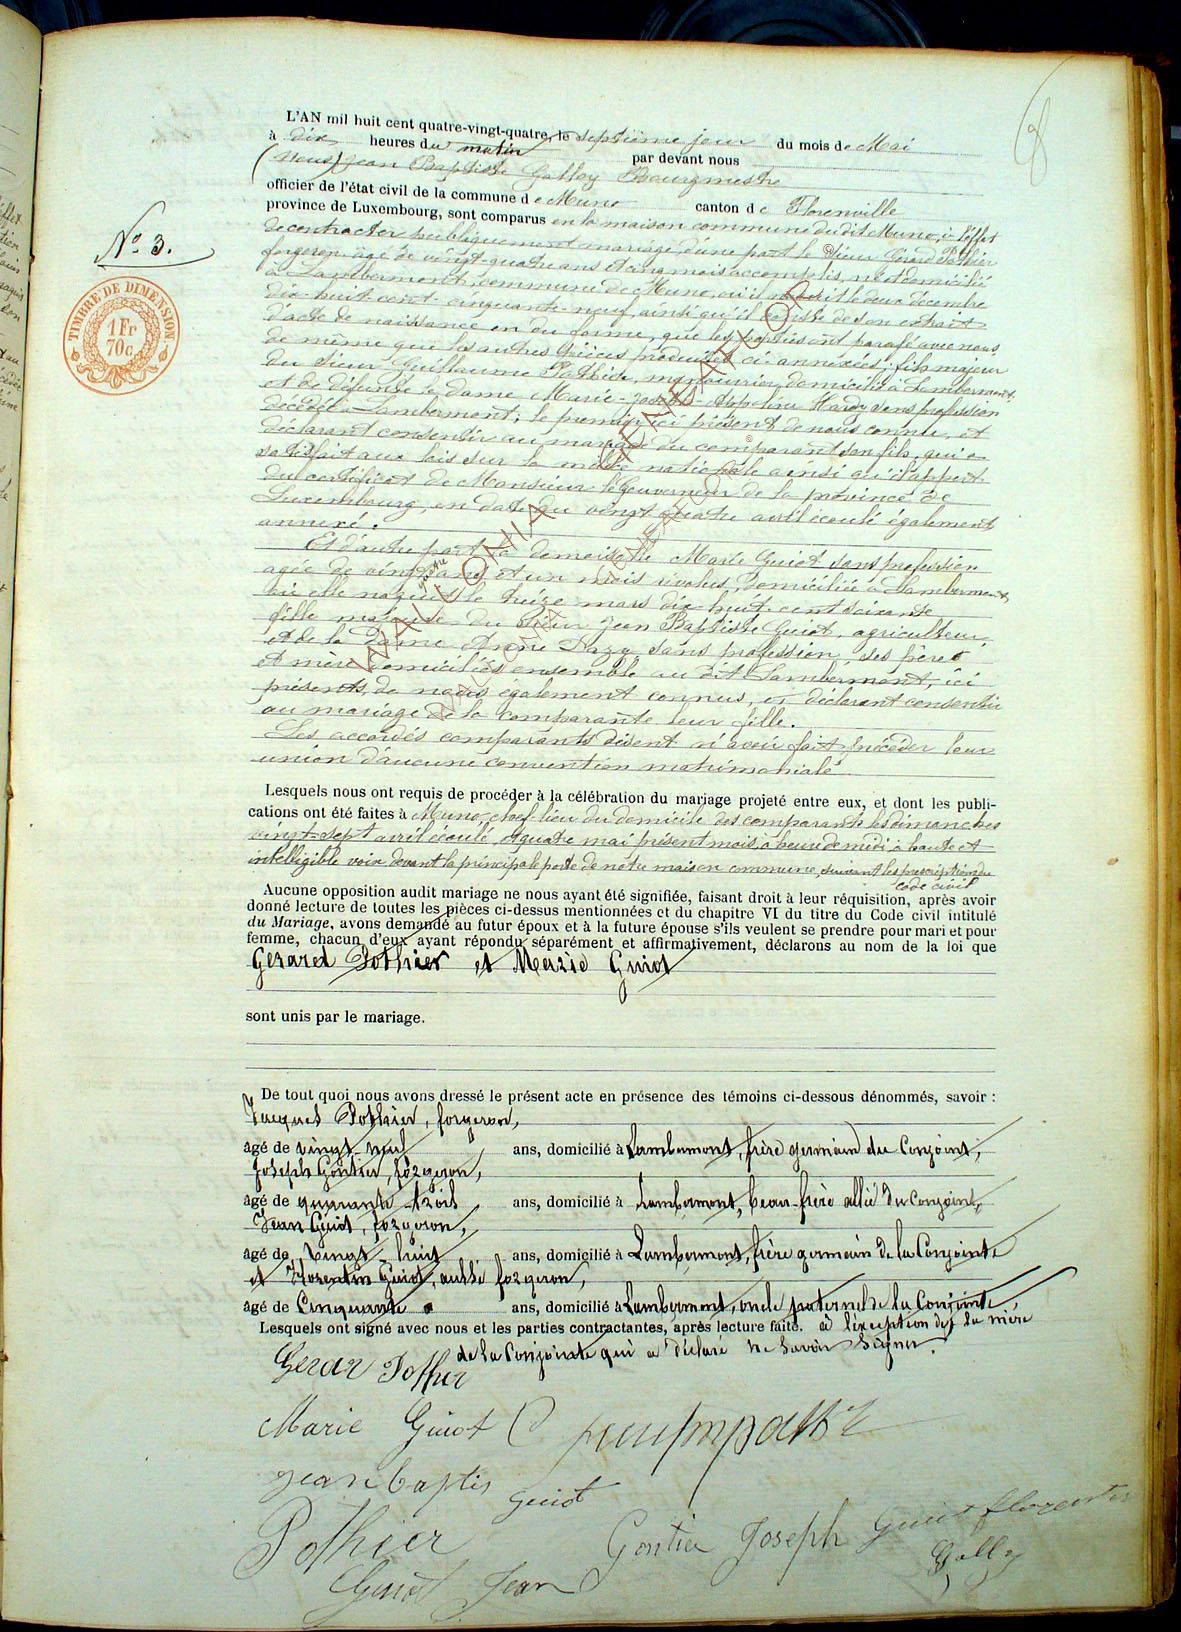 L'AN mil huit cent quatre-vingt-quatre, le septième jour du mois de Mai
à dix heures du matin par devant nous
(nous) Jean Baptiste Galloy Bourgmestre
officier de l'état civil de la commune de Muno canton de Florenville
province de Luxembourg, sont comparus en la maison commune du dit Muno, à l'effet
de contracter publiquement mariage, d'une part le Sieur Gérard Pothier
forgeron âgé de vingt-quatre ans et cinq mois accomplis, né et domicilié
à Lambermont, commune de Muno, où il naquit le deux décembre
dix-huit-cent-cinquante-neuf, ainsi qu'il conste de son extrait
d'acte de naissance en due forme, que les parties ont parafé avec nous,
de même que les autres pièces produites ci-annexées; fils majeur
du Sieur Guillaume Pothier, manouvrier, domicilié à Lambermont,
et de défunte la dame Marie-Joseph- Hardy sans profession
décédée à Lambermont; le premier ici présent de nous connu, et
déclarant consentir au mariage du comparant son fils, qui a
satisfait aux lois sur la milice nationale ainsi qu'il appert
du certificat de Monsieur le Gouverneur de la province de
Luxembourg, en date du vingt quatre avril écoulé également
annexé.
Et d'autre part la demoiselle Marie Guiot sans profession
âgée de vingt quatre ans et un mois révolus, domiciliée à Lambermont,
où elle naquit le treize mars dix-huit-cent soixante
fille majeure du Sieur Jean Baptiste Guiot, agriculteur,
et de la Dame Anne Lazy sans profession, ses père
et mère domiciliés ensemble au dit Lambermont, ici
présents, de nous également connus, et déclarant consentir
au mariage de la comparante leur fille.
Les accordés comparants disent n'avoir fait précéder leur
union d'aucune convention matrimoniale
Nº 3.
TIMBRE DE DIMENSION
1 Fr
70c.
8
WALLONIA GENSHARE
Lesquels nous ont requis de procéder à la célébration du mariage projeté entre eux, et dont les publi-
cations ont été faites à Muno, chef-lieu du domicile des comparants les dimanches
vingt-sept avril écoulé, et quatre mai présent mois, à heure de midi à haute et
intelligible voix devant la principale porte de notre maison commune, suivant les prescriptions du
code civil
Aucune opposition audit mariage ne nous ayant été signifiée, faisant droit à leur réquisition, après avoir
donné lecture de toutes les pièces ci-dessus mentionnées et du chapitre VI du titre du Code civil intitulé
du Mariage, avons demandé au futur époux et à la future épouse s'ils veulent se prendre pour mari et pour
femme, chacun d'eux ayant répondu séparément et affirmativement, déclarons au nom de la loi que
Gérard Pothier et Marie Guiot
sont unis par le mariage.
De tout quoi nous avons dressé le présent acte en présence des témoins ci-dessous dénommés, savoir :
Jacques Pothier, forgeron,
âgé de vingt-neuf ans, domicilié à Lambermont, frère germain du Conjoint;
Joseph Gontier, forgeron,
âgé de quarante-trois ans, domicilié à Lambermont, beau-frère allié du Conjoint,
Jean Guiot, forgeron,
âgé de vingt-huit ans, domicilié à Lambermont, frère germain de la Conjointe
et Florentin Guiot, aussi forgeron,
âgé de Cinquante ans, domicilié à Lambermont, oncle paternel de la Conjointe
Lesquels ont signé avec nous et les parties contractantes, après lecture faite. à l'exception de la mère
de la Conjointe qui a déclaré ne savoir signer.
Gerar Pothier
Marie Guiot
Jean baptis Guiot
Pothier
Gontier Joseph Guiot florentin
Guiot Jean
Galloy